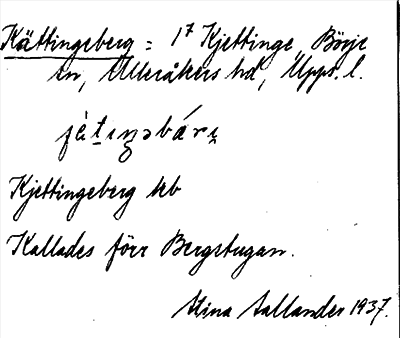 Kättingeberg = 1⁷ Kjettinge, Börje
sn, Ulleråkers hd, Upps. l.
Kjettingeberg kb
Kallades förr Bergstugan.
Stina Sallander 1937.